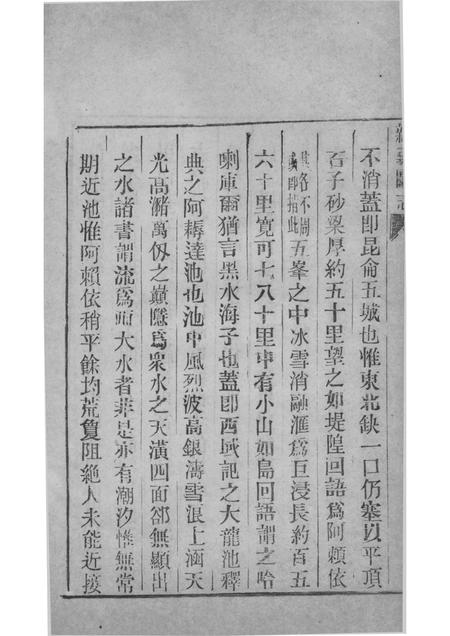 不消蓋即昆侖五城也惟東北缺一口仍塞以平頂
石子砂梁厚約五十里望之如堤隍回語爲阿賴依
五峯之中冰雪消融滙爲巨浸長約百五
六十里寬可七八十里中有小山如島回語謂之哈
喇庫爾猶言黑水海子也蓋即西域記之大龍池釋
典之阿耨達池也池中風烈波高銀濤雪浪上涵天
光高瀦萬仞之巔隱爲衆水之天潢四面卻無顯出
之水諸書謂流爲四大水者非是亦有潮汐惟無常
期近池惟阿賴依稍平餘均荒夐阻絶人未能近接